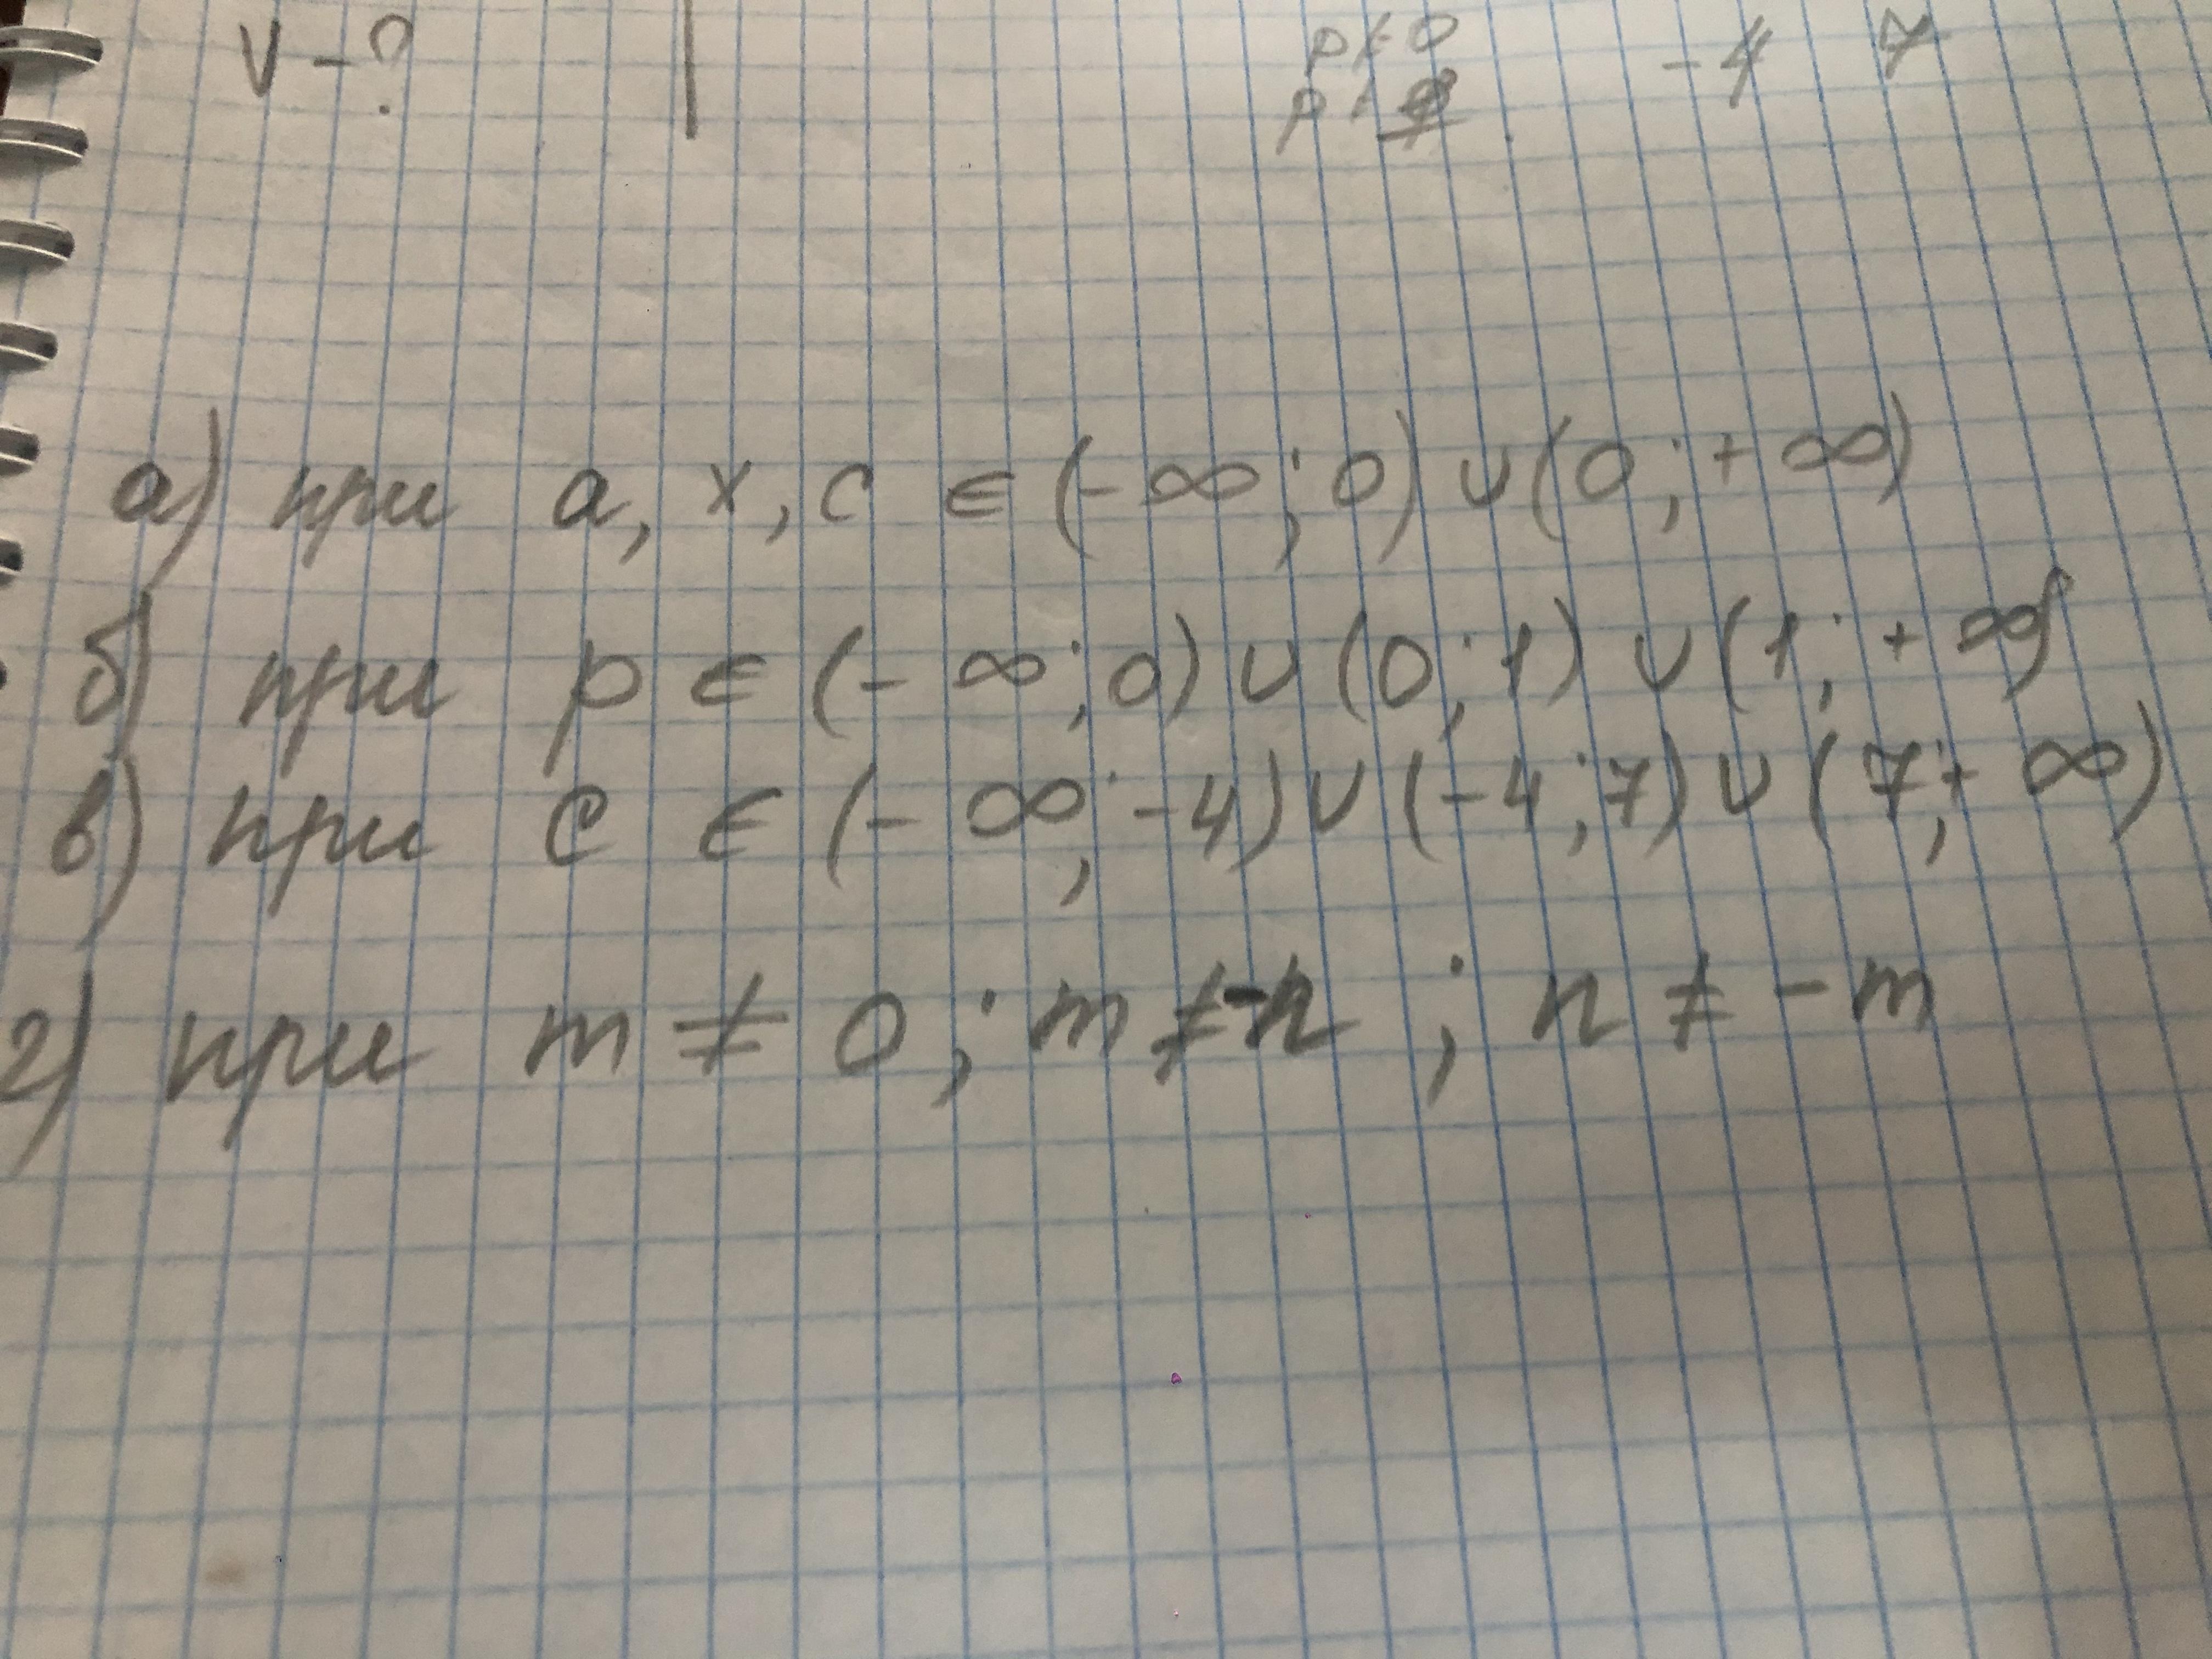 V - ?
p ≠ 0
-4 7
p ≠
а) при a, x, c ∈ (-∞; 0) ∪ (0; +∞)
б) при p ∈ (-∞; 0) ∪ (0; 1) ∪ (1; +∞)
в) при c ∈ (-∞; -4) ∪ (-4; 7) ∪ (7; +∞)
г) при m ≠ 0; m ≠ -n; n ≠ -m